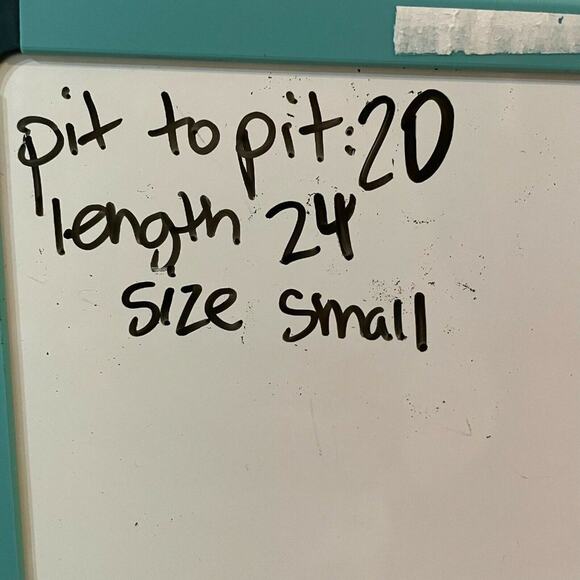 pit to pit: 20
length 24
size small